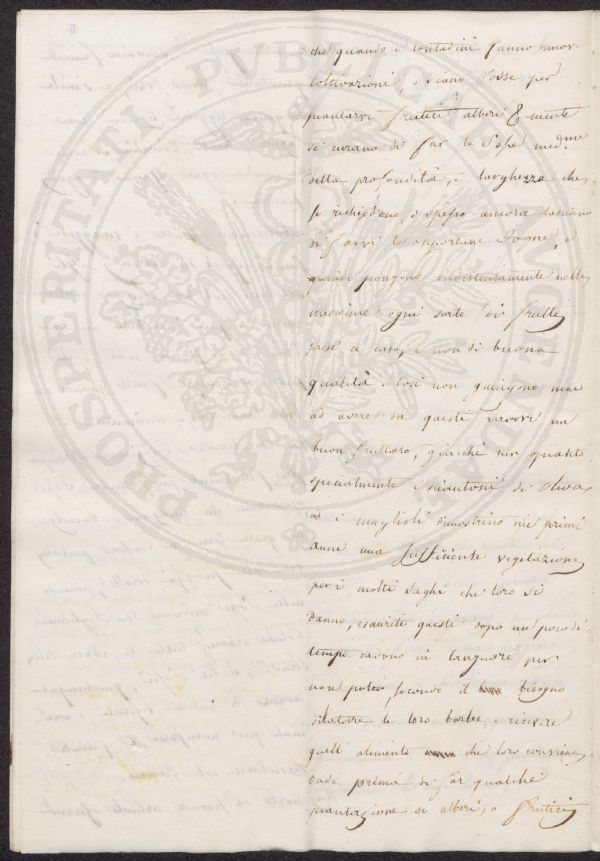 che quando i contadini fanno nuove
coltivazioni, o siano fosse per
piantarvi frutici alberi &
si curano di far le fosse med.me
della profondità, e larghezza che
si richiedono, o spesso ancora lasciano
di farvi le opportune Fogne, e
quivi pongono indistintamente nelle
medesime ogni sorte di frutti
presi a caso, e non di buona
qualità. Così non giungono mai
ad avere da questi lavori un
buon fruttato, giacchè per quanto
specialmente i piantoni di oliva
o i maglioli dimostrino nei primi
anni una sufficiente vegetazione
per i molti sughi che loro si
danno, esauriti questi dopo un poco di
tempo cadono in languore per
non poter, secondo il bisogno
dilatare le loro barbe, e ricevere
quell' alimento che loro conviene
onde prima di far qualche
piantazione di alberi, o frutici
PROSPERITATI PVBLICAE AVGENDAE